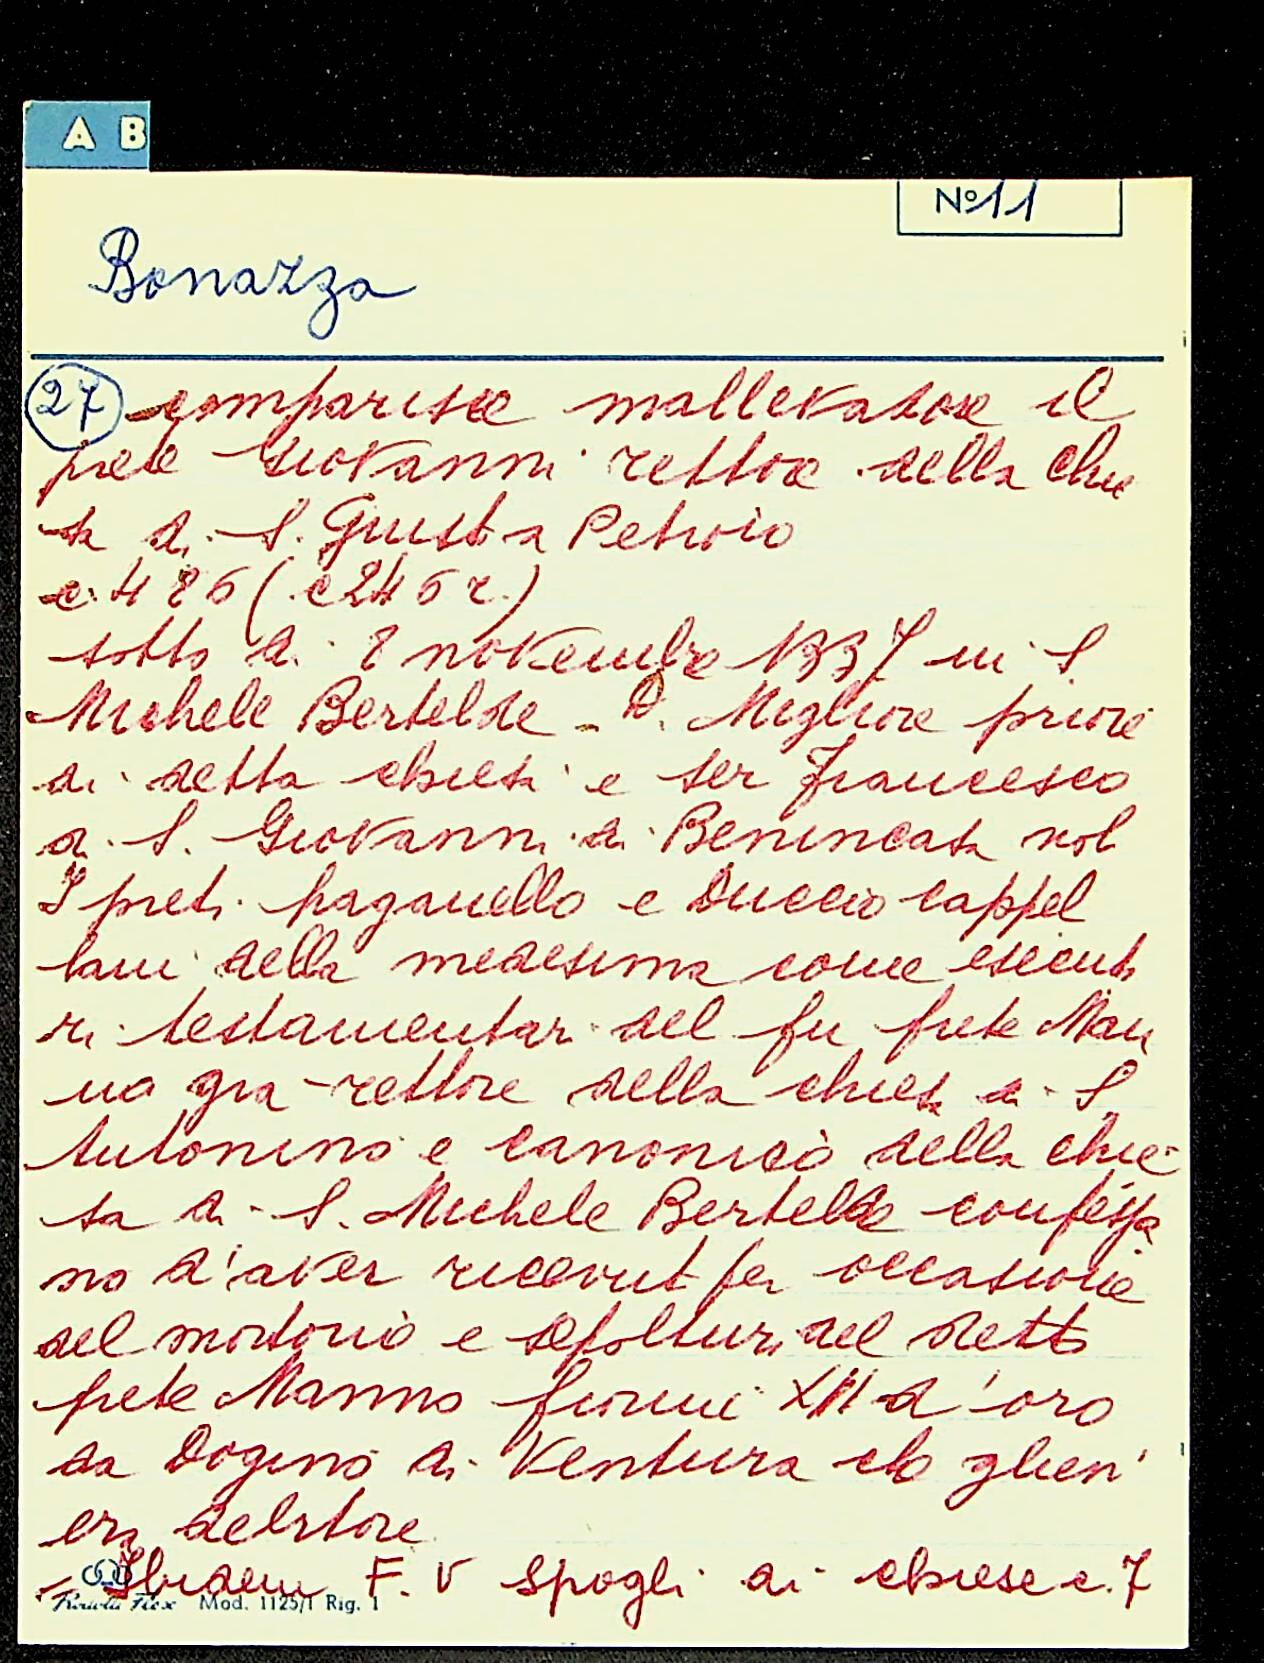 A B
Nº 11
Bonazza
27 comparisce mallevadore il
prete Giovanni rettore della chie
sa di S. Giusto a Petroio
c. 486 (c 246 r.)
sotto di 8 novembre 1337 in S.
Michele Bertelde - D. Migliore priore
di detta chiesa e ser Francesco
di S. Giovanni di Benincasa
I preti paganello e Duccio cappel
lani della medesima come esecuto
ri testamentari del fu prete Man
no già rettore della chiesa di S.
Antonino e canonico della chie
sa di S. Michele Bertelde confessa
no d'aver ricevuto per occasione
del mortorio e sepoltura del detto
prete Manno fiorini XII d'oro
da Dogino di Ventura che glien'
era debitore
Ibidem F. V spogli di chiese c. 7
Mod. 1125/1 Rig. 1